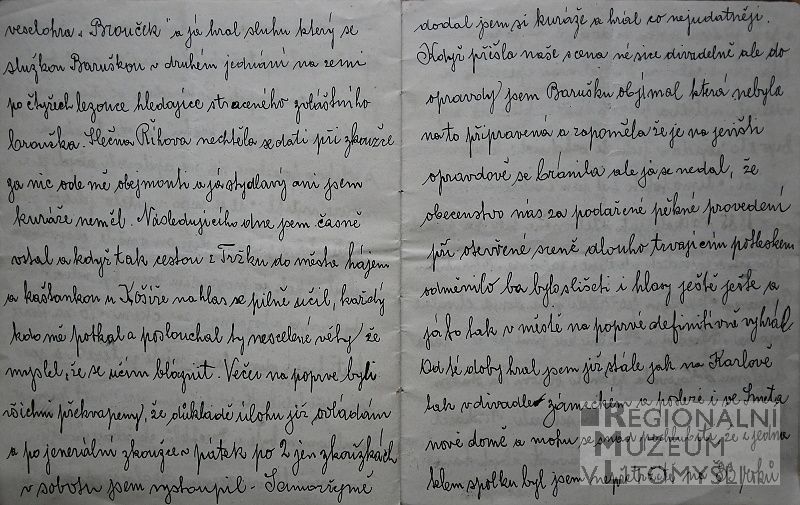 veselohra „Brouček" a já hral sluhu který se
služkou Baruškou v druhém jednání na zemi
po čtyřech lezouce hledajíce straceného zvláštního
broučka. Slečna Říhova nechtěla se dáti při zkoužce
za nic ode mě obejmouti a já stydlavý ani jsem
kuráže neměl. Následujicího dne jsem časně
vstal a když tak cestou z Tržku do města hájem
a kaštankou u Košíře nahlas se pilně učil, každý
kdo mě potkal a poslouchal ty nescelené věty že
myslel, že se učím bláznit. Večer na poprve byli
všichni překvapeny, že důkladě úlohu již ovládám
a po jenerální zkoužce v pátek po 2 jen zkouškách
v sobotu jsem vystoupil. Samozřejmě
dodal jsem si kuráže a hrál co nejudatněji.
Když přišla naše scena né sice divadelně ale do
opravdy jsem Barušku objímal která nebyla
na to připravená a zapoměla že je na jevišti
opravdově se bránila ale já se nedal, že
obecenstvo nás za podařené pěkné provedení
při otevřené sceně dlouho trvajícím potleskem
odměnilo ba bylo slišeti i hlasy ještě ješte a
já to tak v městě na poprvé definitivně vyhrál
Od té doby hral jsem již stále jak na Karlově
tak v divadle zámeckém a později i ve Smeta
nově domě a mohu se snad pochlubiti, že i jedna
telem spolku byl jsem nepřetržitě
REGIONÁLNÍ
MUZEUM
V LITOMYŠLI